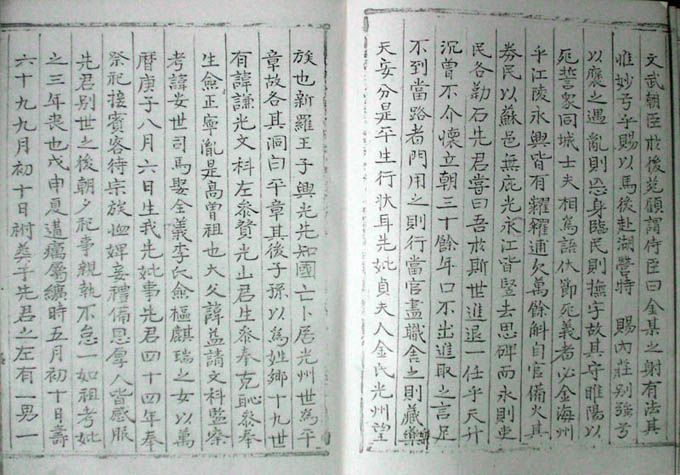 文武朝臣於後苑顧謂侍臣曰金某之射有法其
惟妙乎賜以馬後赴湖營特 賜內莊別强弓
以褒之遇亂則忘身臨民則撫字故其守睢陽以
死誓衆同城士夫相爲語伏節死義者必金海州
乎江陵永興皆有糶糴逋欠萬餘斛自官備火其
券民以蘇邑無疵光永江皆竪去思碑而永則吏
民各勒石先君嘗曰吾於斯世進退一任乎天升
沉曾不介懷立朝三十餘年口不出進取之言足
不到當路者門用之則行當官盡職舍之則藏樂
天安分是平生行狀耳先妣貞夫人金氏光州望
族也新羅王子興光先知國亡卜居光州世爲平
章故各其洞曰平章其後子孫以爲姓鄕十九世
有諱謙光文科左參贊光山君生參奉克恥參奉
生僉正寧胤是高曾祖也大父諱益請文科監察
考諱安世司馬娶全義李氏僉樞麒瑞之女以萬
曆庚子八月六日生我先妣事先君四十四年奉
祭祀接賓客待宗族恤婢妾禮備恩厚人皆感服
先君別世之後朝夕祀事親執不怠一如祖考妣
之三年喪也戊申夏遘癘屬纊時五月初十日壽
六十九九月初十日祔葬于先君之左有一男一